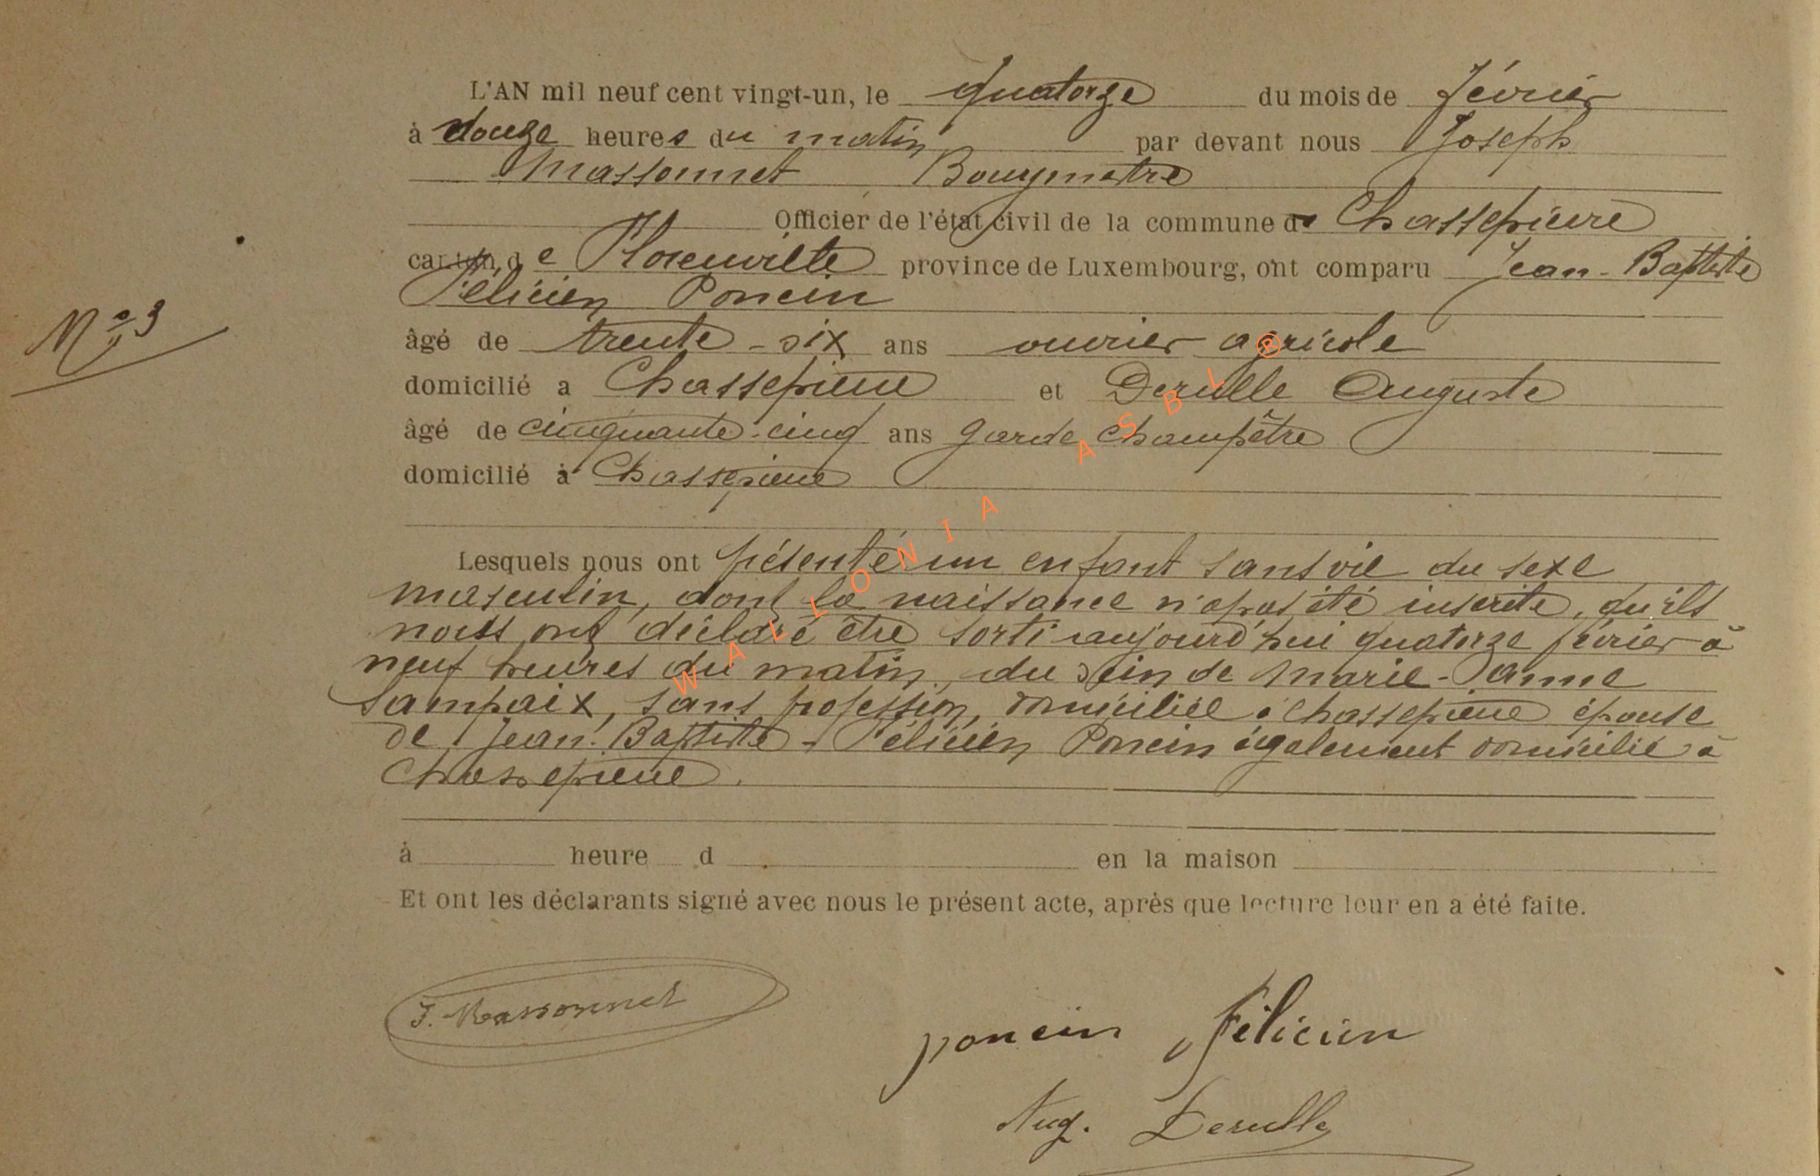 L'AN mil neuf cent vingt-un, le quatorze du mois de février
à douze heures du matin par devant nous Joseph
Massonnet Bourgmestre
Officier de l'état civil de la commune de Chassepierre
canton de Florenville province de Luxembourg, ont comparu Jean-Baptiste
Félicien Poncin
N° 3
âgé de trente-six ans ouvrier agricole
domicilié a Chassepierre et Derulle Auguste
âgé de cinquante-cinq ans garde champêtre
domicilié à Chassepierre
Lesquels nous ont présenté un enfant sans vie du sexe
masculin, dont la naissance n'a pas été inscrite, qu'ils
nous ont déclaré être sorti aujourd'hui quatorze février à
neuf heures du matin, du sein de Marie-Jeanne
Sampaix, sans profession, domiciliée à Chassepierre épouse
de Jean-Baptiste-Félicien Poncin également domicilié à
Chassepierre.
à heure d en la maison
Et ont les déclarants signé avec nous le présent acte, après que lecture leur en a été faite.
J. Massonnet
poncin félicien
Aug. Derulle
WALLONIA ASBL ®